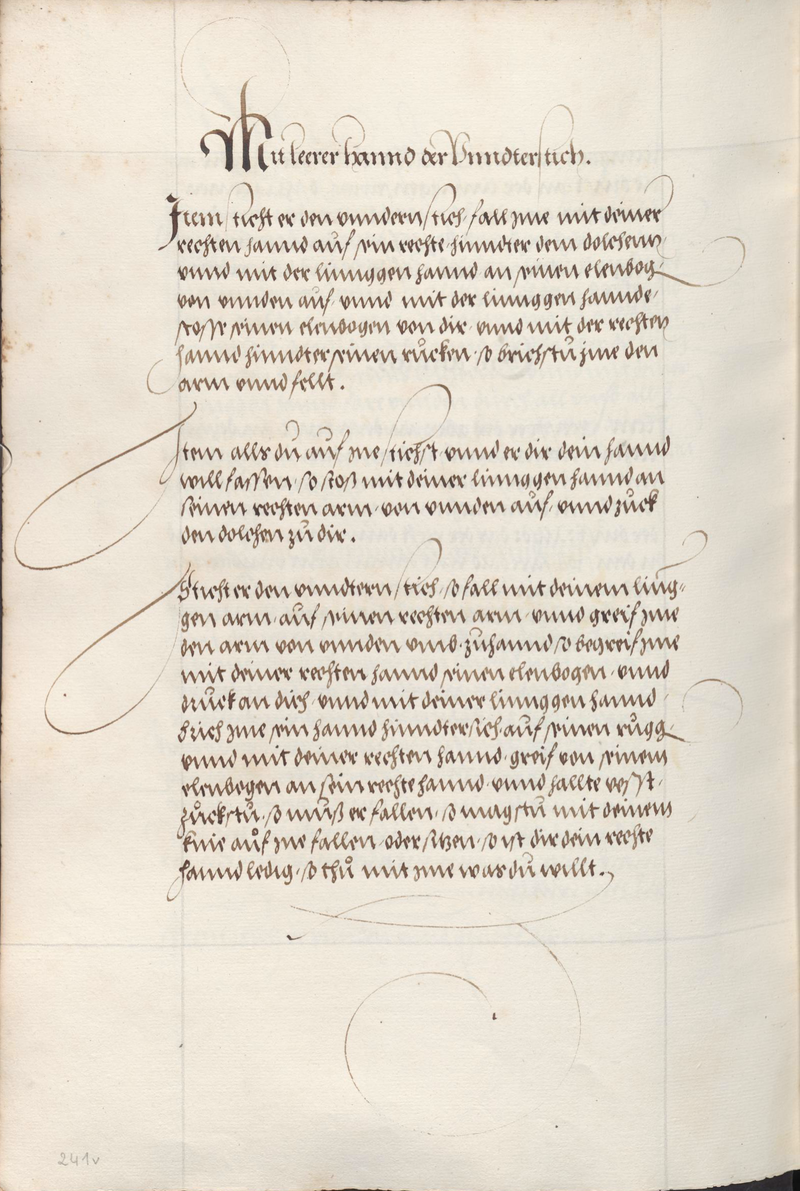 Mit leerer hannd der Vnndterstich.
Item sticht er den vnndern stich, fall jme mit deiner
rechten hannd auf sein rechte hinndter dem dolchenn,
vnnd mit der linnggen hannd an seinen elenbog,
von vnnden auf, vnnd mit der linnggen hannde,
stosse seinen elenbogen von dir, vnnd mit der rechten
hannd hinndter seinen rucken, so brichstu jme den
arm vnnd fellt.
Item alls du auf jne stichst, vnnd er dir dein hannd
will fassen, so stoß mit deiner linnggen hannd an
seinen rechten arm, von vnnden auf, vnnd zuck
den dolchen zu dir.
Sticht er den vnndtern stich, so fall mit deinem ling-
gen arm, auf seinen rechten arm, vnnd greif jme
den arm von vnnden vmb, zuhannd so begreif jme
mit deiner rechten hannd seinen elenbogen, vnnd
druck an dich, vnnd mit deiner linnggen hannd,
brich jme sein hannd hinndtersich, auf seinen rugg,
vnnd mit deiner rechten hannd, greif von seinem
elenbogen an sein rechte hannd, vnnd hallte vesst,
zuckstu, so muß er fallen, so magstu mit deinem
knie auf jne fallen, oder sitzen, so ist dir dein rechte
hannd ledig, so thu mit jme was du willt.
241v